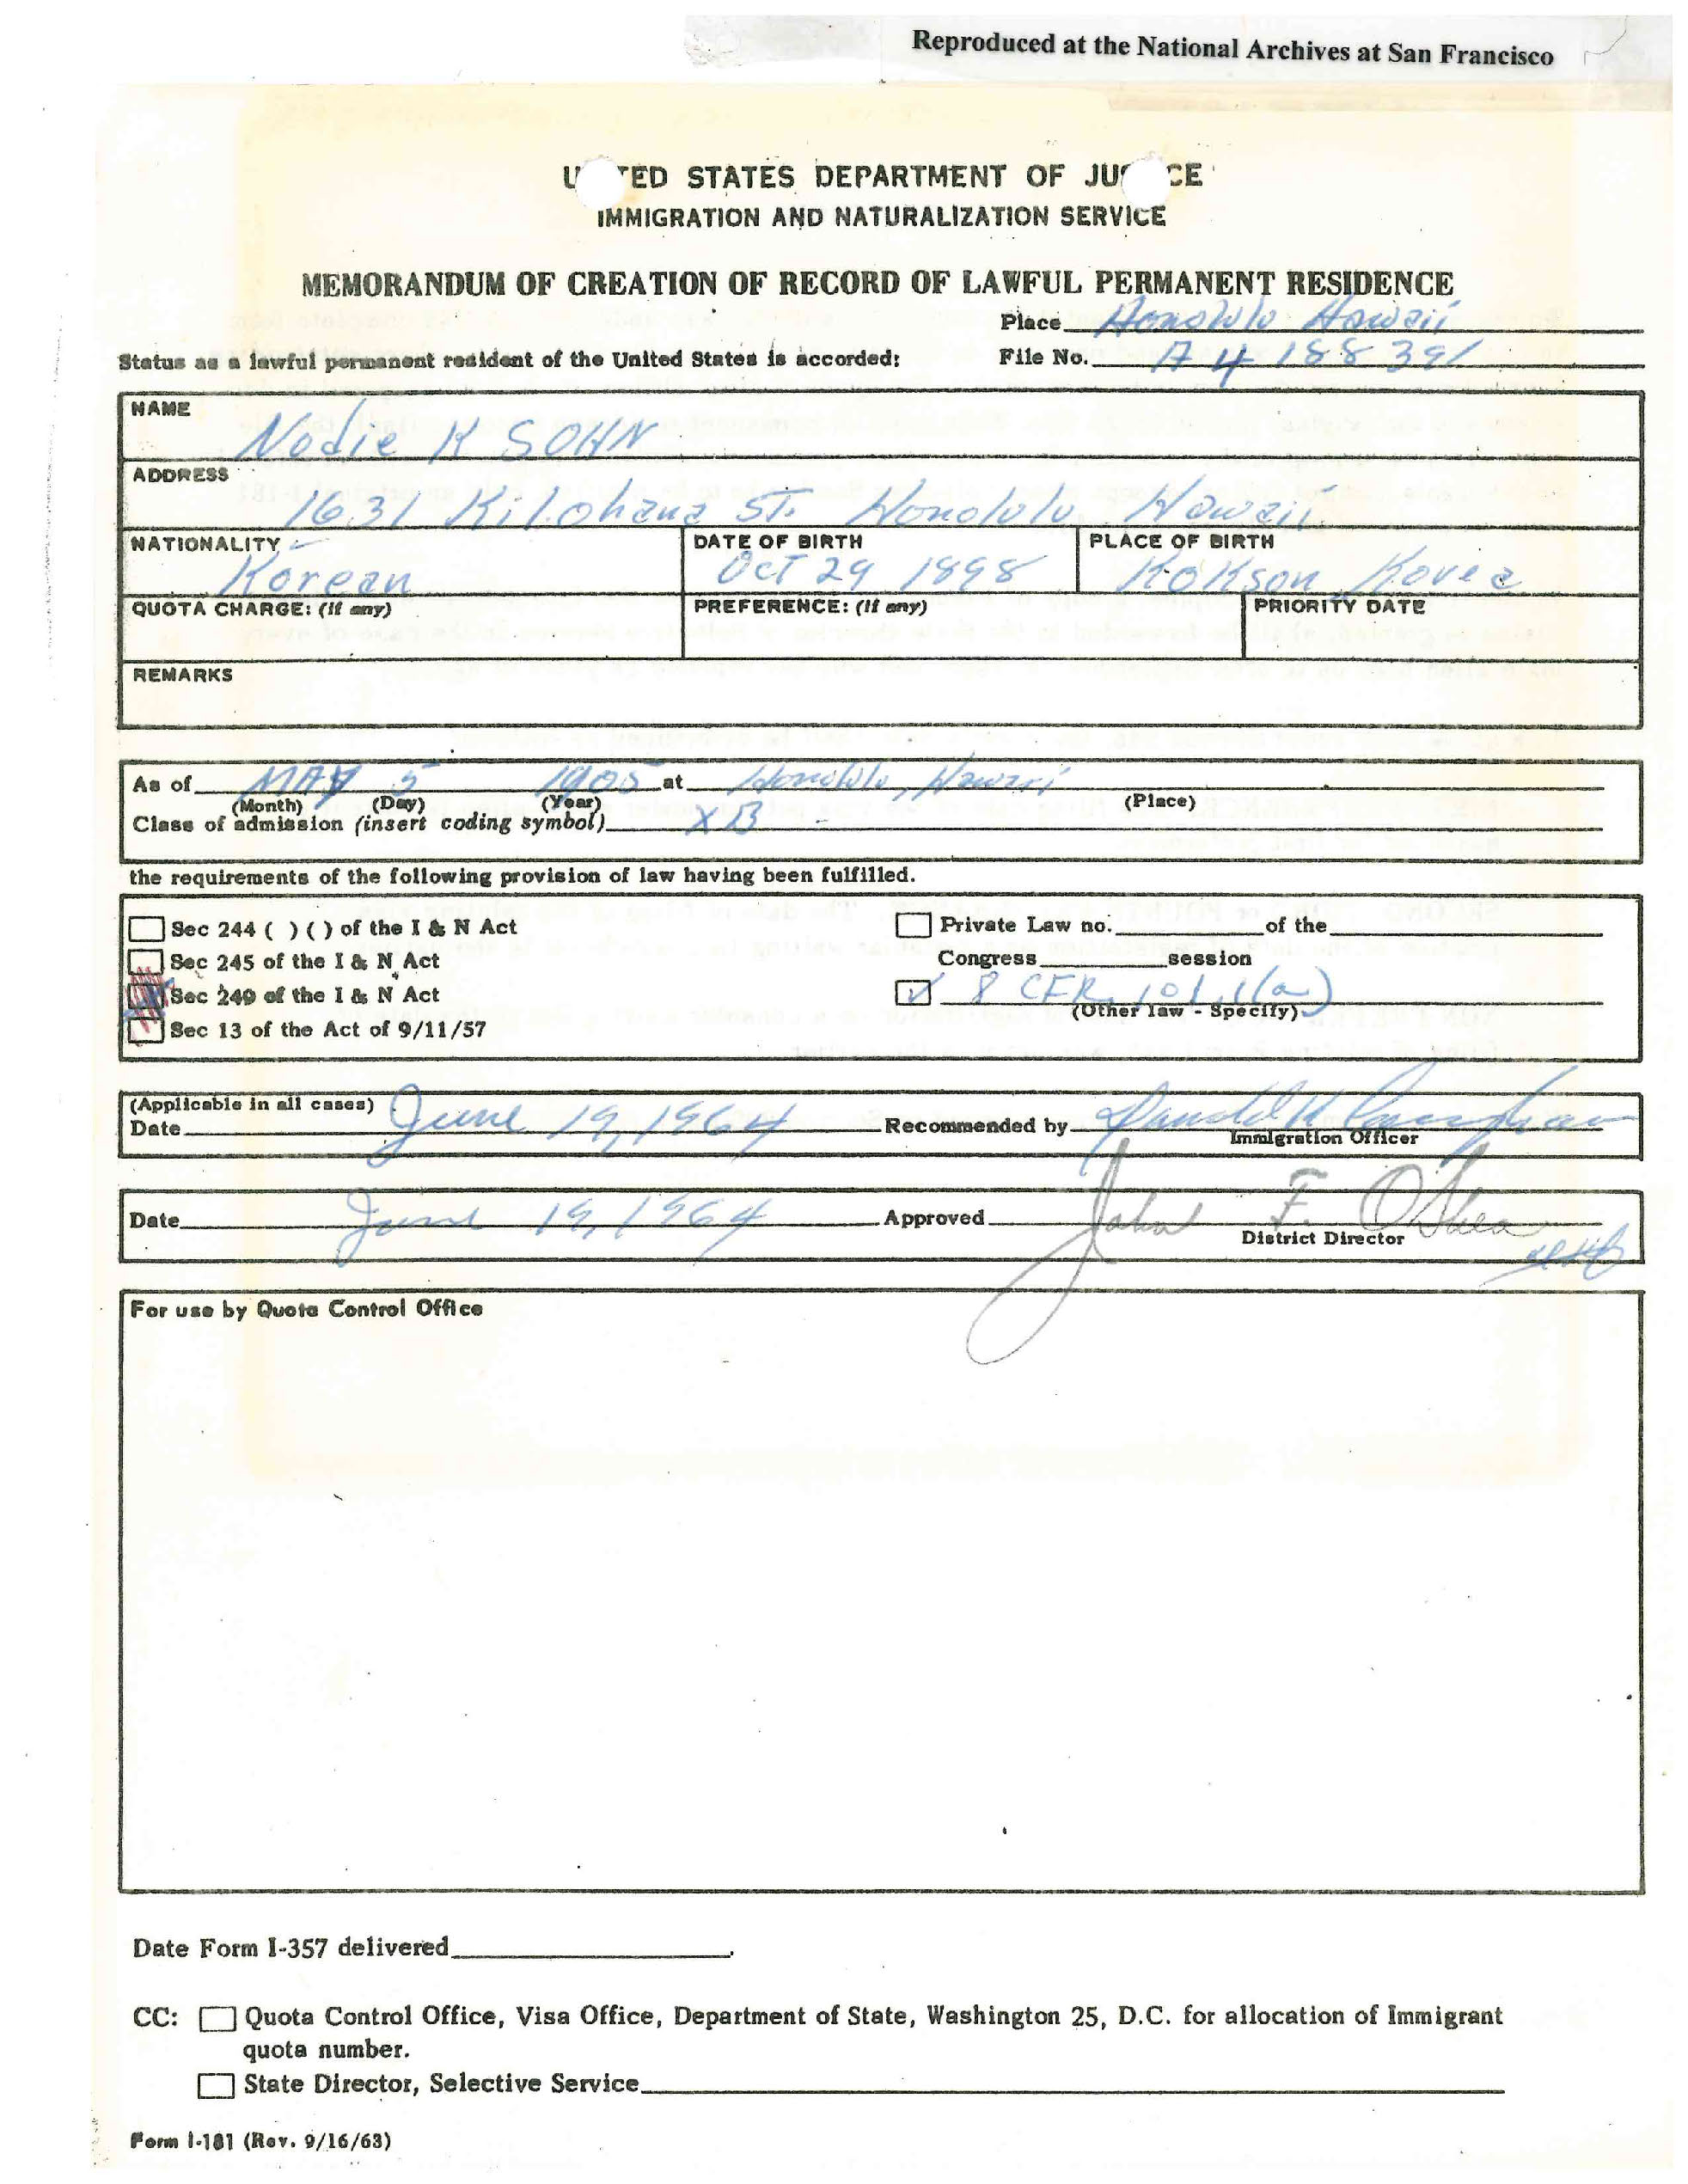 Reproduced at the National Archives at San Francisco
U TED STATES DEPARTMENT OF JUS CE
IMMIGRATION AND NATURALIZATION SERVICE
MEMORANDUM OF CREATION OF RECORD OF LAWFUL PERMANENT RESIDENCE
Place Honolulu Hawaii
Status as a lawful permanent resident of the United States is accorded: File No. A4 188 391
NAME
Nodie K SOHN
ADDRESS
1631 Kilohana ST. Honolulu, Hawaii
NATIONALITY DATE OF BIRTH PLACE OF BIRTH
Korean Oct 29 1898 KoKson Korea
QUOTA CHARGE: (If any) PREFERENCE: (If any) PRIORITY DATE
REMARKS
As of MAY 5 1905 at Honolulu, Hawaii
(Month) (Day) (Year) (Place)
Class of admission (insert coding symbol) XB -
the requirements of the following provision of law having been fulfilled.
Sec 244 ( ) ( ) of the I & N Act Private Law no. of the
Sec 245 of the I & N Act Congress session
Sec 249 of the I & N Act ✓ 8 CFR 101.1(a)
(Other law - Specify)
Sec 13 of the Act of 9/11/57
(Applicable in all cases)
Date June 19, 1964 Recommended by
Immigration Officer
Date June 19, 1964 Approved John F. O'Shea
District Director
For use by Quota Control Office
Date Form I-357 delivered
CC: Quota Control Office, Visa Office, Department of State, Washington 25, D.C. for allocation of Immigrant
quota number.
State Director, Selective Service
Form I-181 (Rev. 9/16/63)